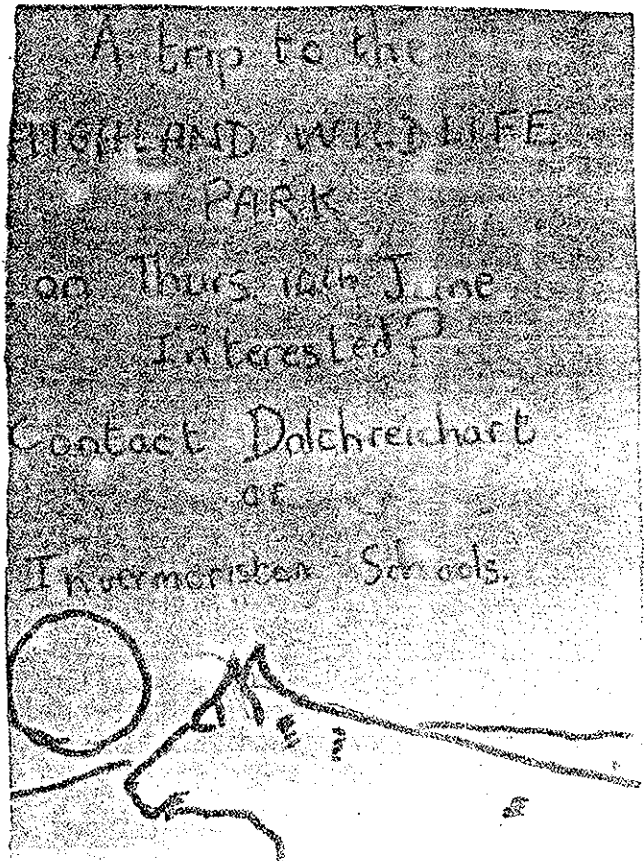 A trip to the
HIGHLAND WILDLIFE
PARK
on Thurs. 16th June
Interested?
Contact Dalchreichart
or
Invermoriston Schools.